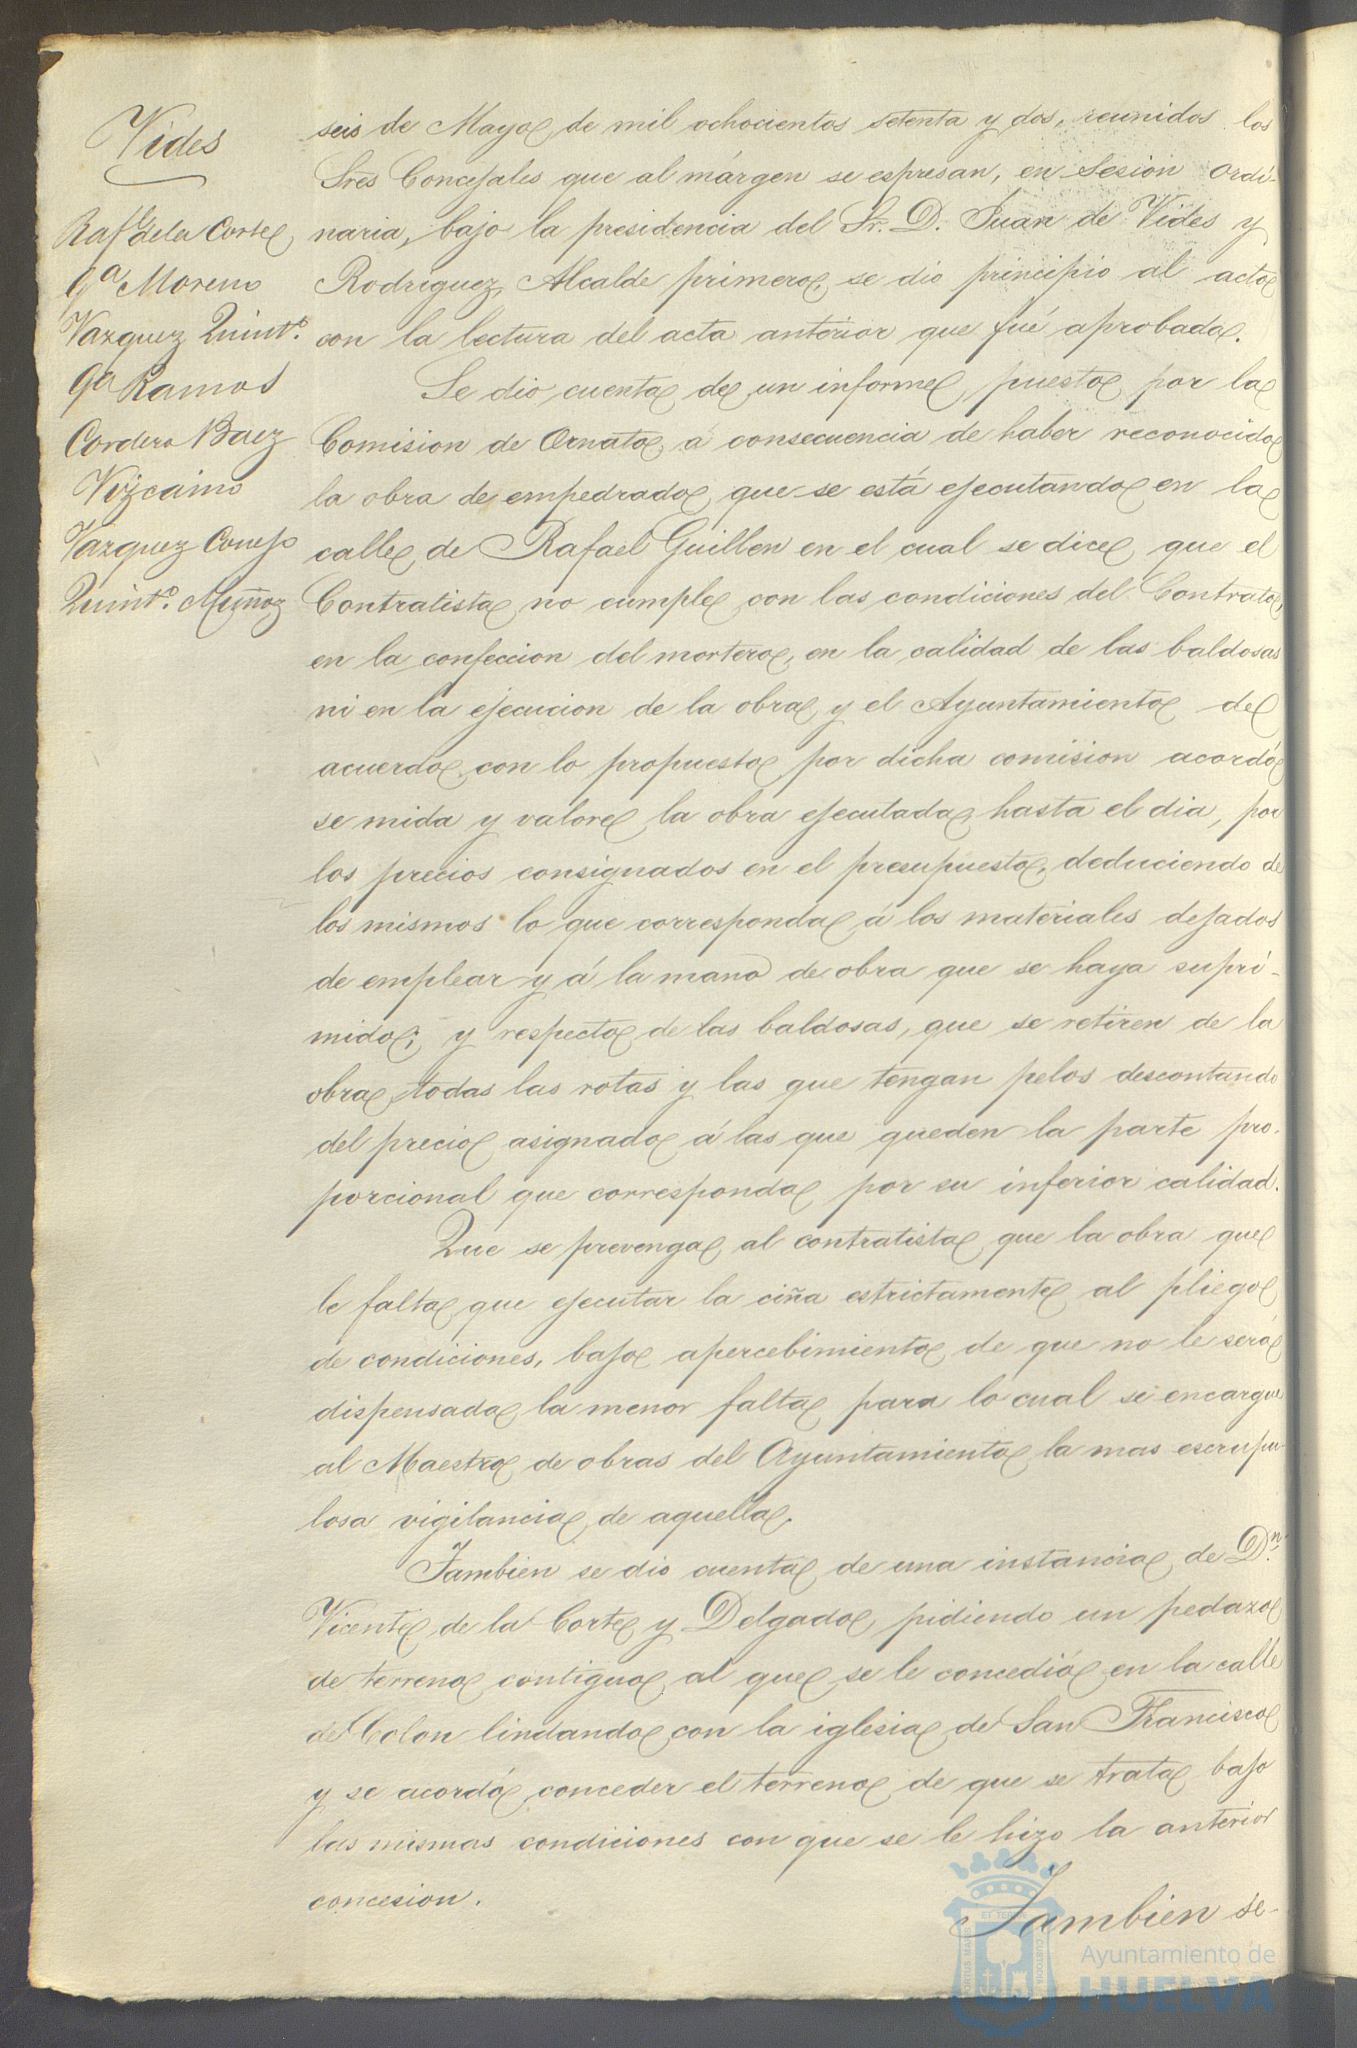 Vides
Raf.l de la Corte
Ga. Moreno
Vazquez Quint.o
Ga Ramos
Cordero Baez
Vizcaino
Vazquez Conejo
Quint.o Muñoz
seis de Mayo de mil ochocientos setenta y dos, reunidos los
Sres Concejales que al márgen se espresan, en Sesion ordi-
naria, bajo la presidencia del Sr. D. Juan de Vides y
Rodriguez, Alcalde primero, se dio principio al acto
con la lectura del acta anterior que fué aprobada.
Se dio cuenta de un informe puesto por la
Comision de Ornato, á consecuencia de haber reconocido
la obra de empedrado que se está ejecutando en la
calle de Rafael Guillen en el cual se dice que el
Contratista no cumple con las condiciones del Contrato,
en la confeccion del mortero, en la calidad de las baldosas
ni en la ejecucion de la obra, y el Ayuntamiento de
acuerdo con lo propuesto por dicha comision acordó
se mida y valore la obra ejecutada hasta el dia, por
los precios consignados en el presupuesto, deduciendo de
los mismos lo que corresponda á los materiales dejados
de emplear y á la mano de obra que se haya supri-
mido; y respecto de las baldosas, que se retiren de la
obra todas las rotas y las que tengan pelos descontando
del precio asignado á las que queden la parte pro-
porcional que corresponda por su inferior calidad.
Que se prevenga al contratista que la obra que
le falta que ejecutar la ciña estrictamente al pliego
de condiciones, bajo apercebimiento de que no le será
dispensada la menor falta para lo cual se encargue
al Maestro de obras del Ayuntamiento la mas escrupu-
losa vigilancia de aquella.
Tambien se dio cuenta de una instancia de D.n
Vicente de la Corte y Delgado pidiendo un pedazo
de terreno contiguo al que se le concedió en la calle
de Colon lindando con la iglesia de San Francisco
y se acordó conceder el terreno de que se trata bajo
las mismas condiciones con que se le hizo la anterior
concesion.
Tambien se-
Ayuntamiento de
HUELVA